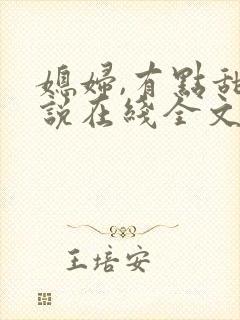 媳婦,有點甜
說在綫全文
王培安